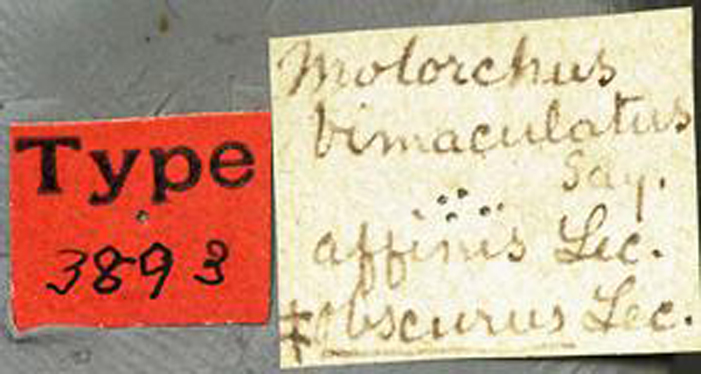 Type
3893
Molorchus
bimaculatus
Say.
affinis Lec.
‡obscurus Lec.